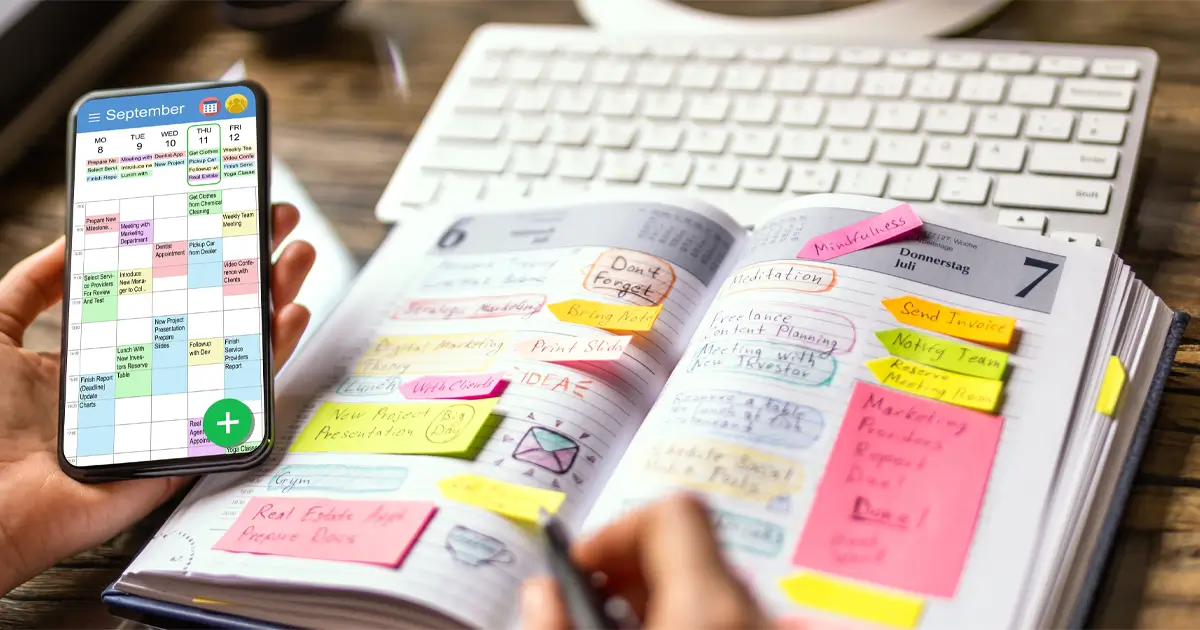 September
MO
TUE
WED
THU
FRI
8
9
10
11
12
Prepare Ne
Meeting with
Dentist App
Get Clothes
Weekly Tea
Select Servi
Introduce ne
New Project
Pickup Car
Video Confe
Finish Repo
Lunch with
Followup wi
Finish Servi
Real Estate
Yoga Classe
Get Clothes
from Chemical
Cleaning
Prepare New
Milestone...
Meeting with
Marketing
Department
Weekly Team
Meeting
Dentist
Appointment
Pickup Car
from Dealer
Video Confe-
rence with
Clients
Select Servi-
ce Providers
For Review
And Test
Introduce
New Mena-
ger to Col...
New Project
Presentation
Prepare
Slides
Lunch With
New Inves-
tors Reserve
Table
Followup
with Dev
Finish
Service
Providers
Report
Finish Report
(Deadline)
Update
Charts
Real
Agen
Appoin
Yoga Classe
+
6
Don't
Forget
Strategic Marketing
Bring Note
Digital Marketing
Theory
Print Slide
Lunch
With Clients
IDEA
New Project
Presentation
Big
Day
Gym
Real Estate Appt
Prepare Docs
Mindfulness
Woche
Donnerstag
Juli
7
Meditation
Send Invoice
Freelance
Content Planning
Notify Team
Meeting with
New Investor
Reserve
Meeting Room
Reserve a table
Marketing
Report
Due!
Schedule Social
Shift